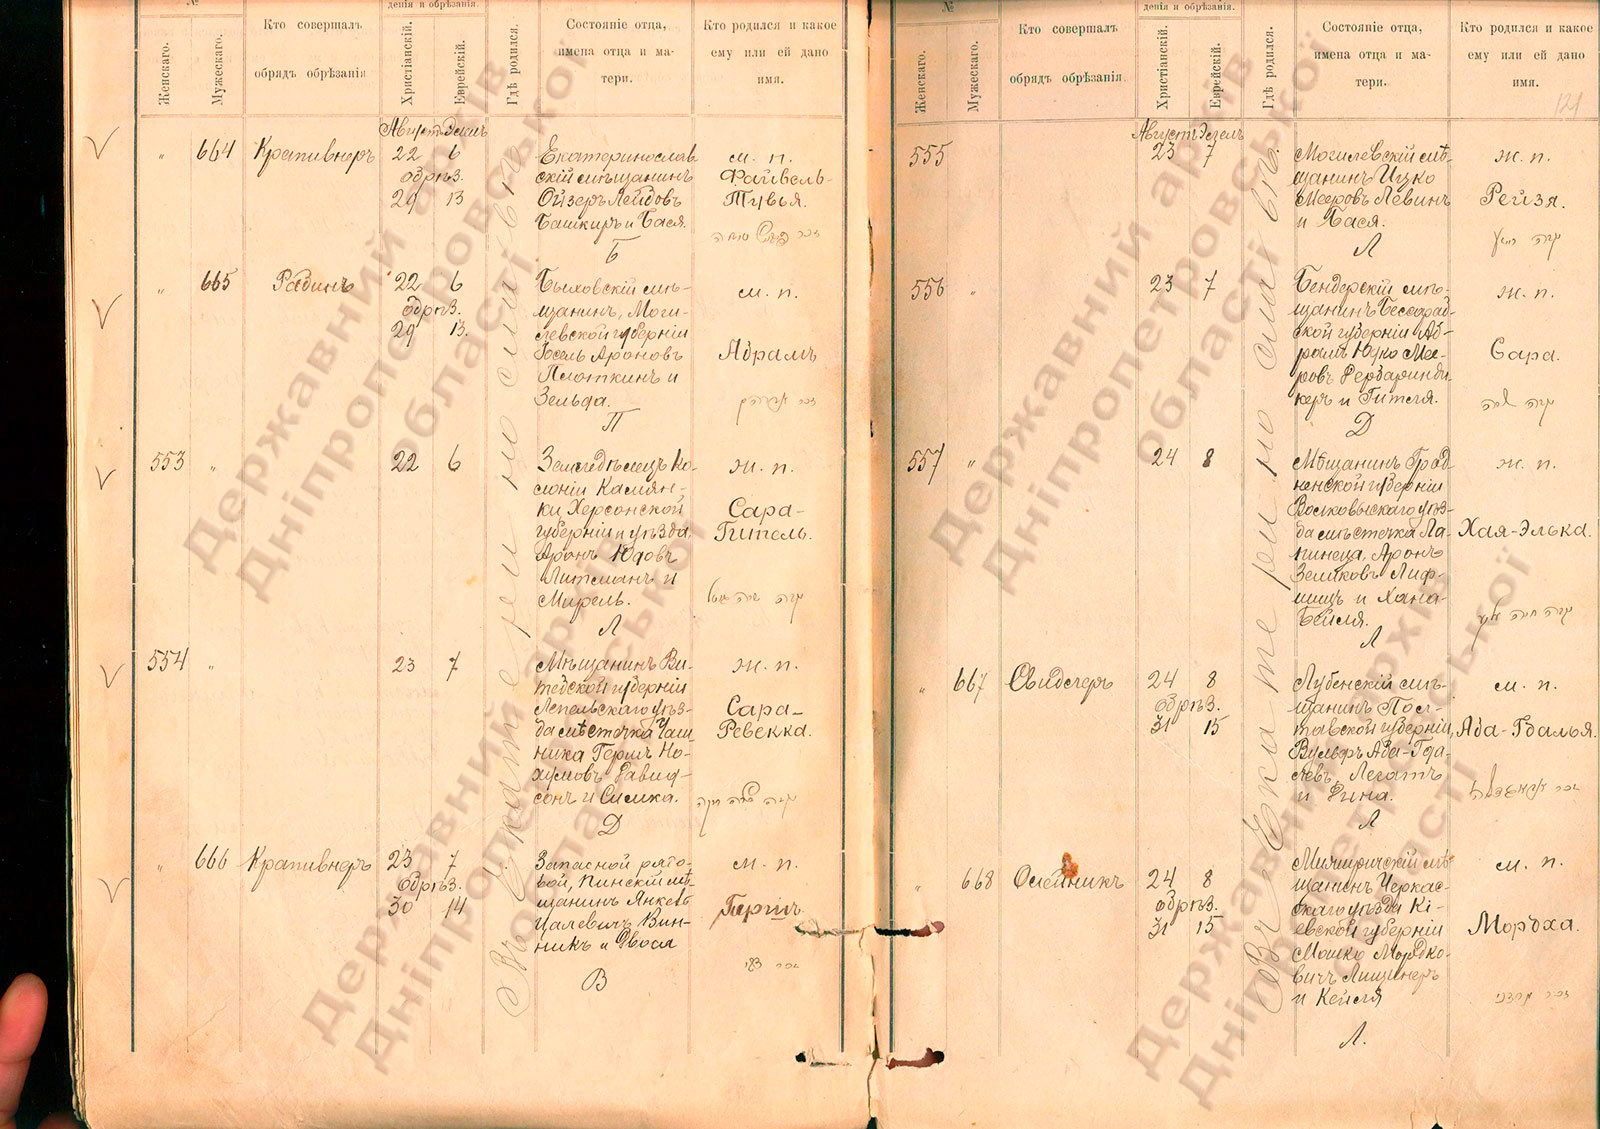 №
Женскаго.
Мужескаго.
Кто совершалъ
обрядъ обрѣзанія
денія и обрѣзанія.
Христіанскій.
Еврейскій.
Гдѣ родился.
Состояніе отца,
имена отца и ма-
тери.
Кто родился и какое
ему или ей дано
имя.
Августъ
" 664 Крапивнеръ 22 6
обрѣз.
29 13
Екатеринослав
скій мѣщанинъ
Ойзеръ Лейбовъ
Башкиръ и Бася.
Б
м. п.
Файвель-
Тувья.
" 665 Рабинъ 22 6
обрѣз.
29 13.
Быховскій мѣ-
щанинъ, Моги-
левской губерніи
Іосель Ароновъ
Плоткинъ и
Зельда.
П
м. п.
Абрамъ
553 " 22 6
Земледѣлецъ ко-
лоніи Камян-
ки, Херсонской
губерніи и уѣзда,
Аронъ Юдовъ
Литманъ и
Мирель.
Л
ж. п.
Сара-
Гитель.
554 " 23 7
Мѣщанинъ Ви-
тебской губерніи
Лепельскаго уѣз-
да мѣстечка Чаш-
ника Гершъ Но-
хумовъ Давид-
сонъ и Симка.
Д
ж. п.
Сара-
Ревекка.
" 666 Крапивнеръ 23 7
обрѣз.
30 14
Запасной рядо-
вой, Пинскій мѣ-
щанинъ Янкель
Цалевичъ Вин-
никъ и Двося
В
м. п.
Гершъ
Въ Екатеринославѣ
№
Женскаго.
Мужескаго.
Кто совершалъ
обрядъ обрѣзанія.
денія и обрѣзанія.
Христіанскій.
Еврейскій.
Гдѣ родился.
Состояніе отца,
имена отца и ма-
тери.
Кто родился и какое
ему или ей дано
имя.
121
Августъ
555 23 7
Могилевскій мѣ-
щанинъ Ицко
Мееровъ Левинъ
и Бася.
Л
ж. п.
Рейзя.
556 " 23 7
Бендерскій мѣ-
щанинъ Бессораб-
ской губерніи Аб-
рамъ Юдко Мее-
ровъ
керъ и Гителя.
Д
ж. п.
Сара.
557 " 24 8
Мѣщанинъ Грод-
ненской губерніи
Волковыскаго уѣз-
да мѣстечка Ла-
пинеца, Аронъ
Зеликовъ Лиф-
шицъ и Хана-
Бейля.
Л
ж. п.
Хая-Элька.
" 667 Свидлеръ 24 8
обрѣз.
31 15
Лубенскій мѣ-
щанинъ Пол-
тавской губерніи,
Вульфъ Аба-Гда-
левъ Легатъ
и Фина.
Л
м. п.
Аба-Гдалья.
" 668 Олейникъ 24 8
обрѣз.
31 15
щанинъ Черкас-
скаго уѣзда Кі-
евской губерніи
Мошко Мордко-
вичъ Лищинеръ
и Кейля
Л.
м. п.
Мордха.
Въ Екатеринославѣ
Державний архів
Дніпропетровської
області